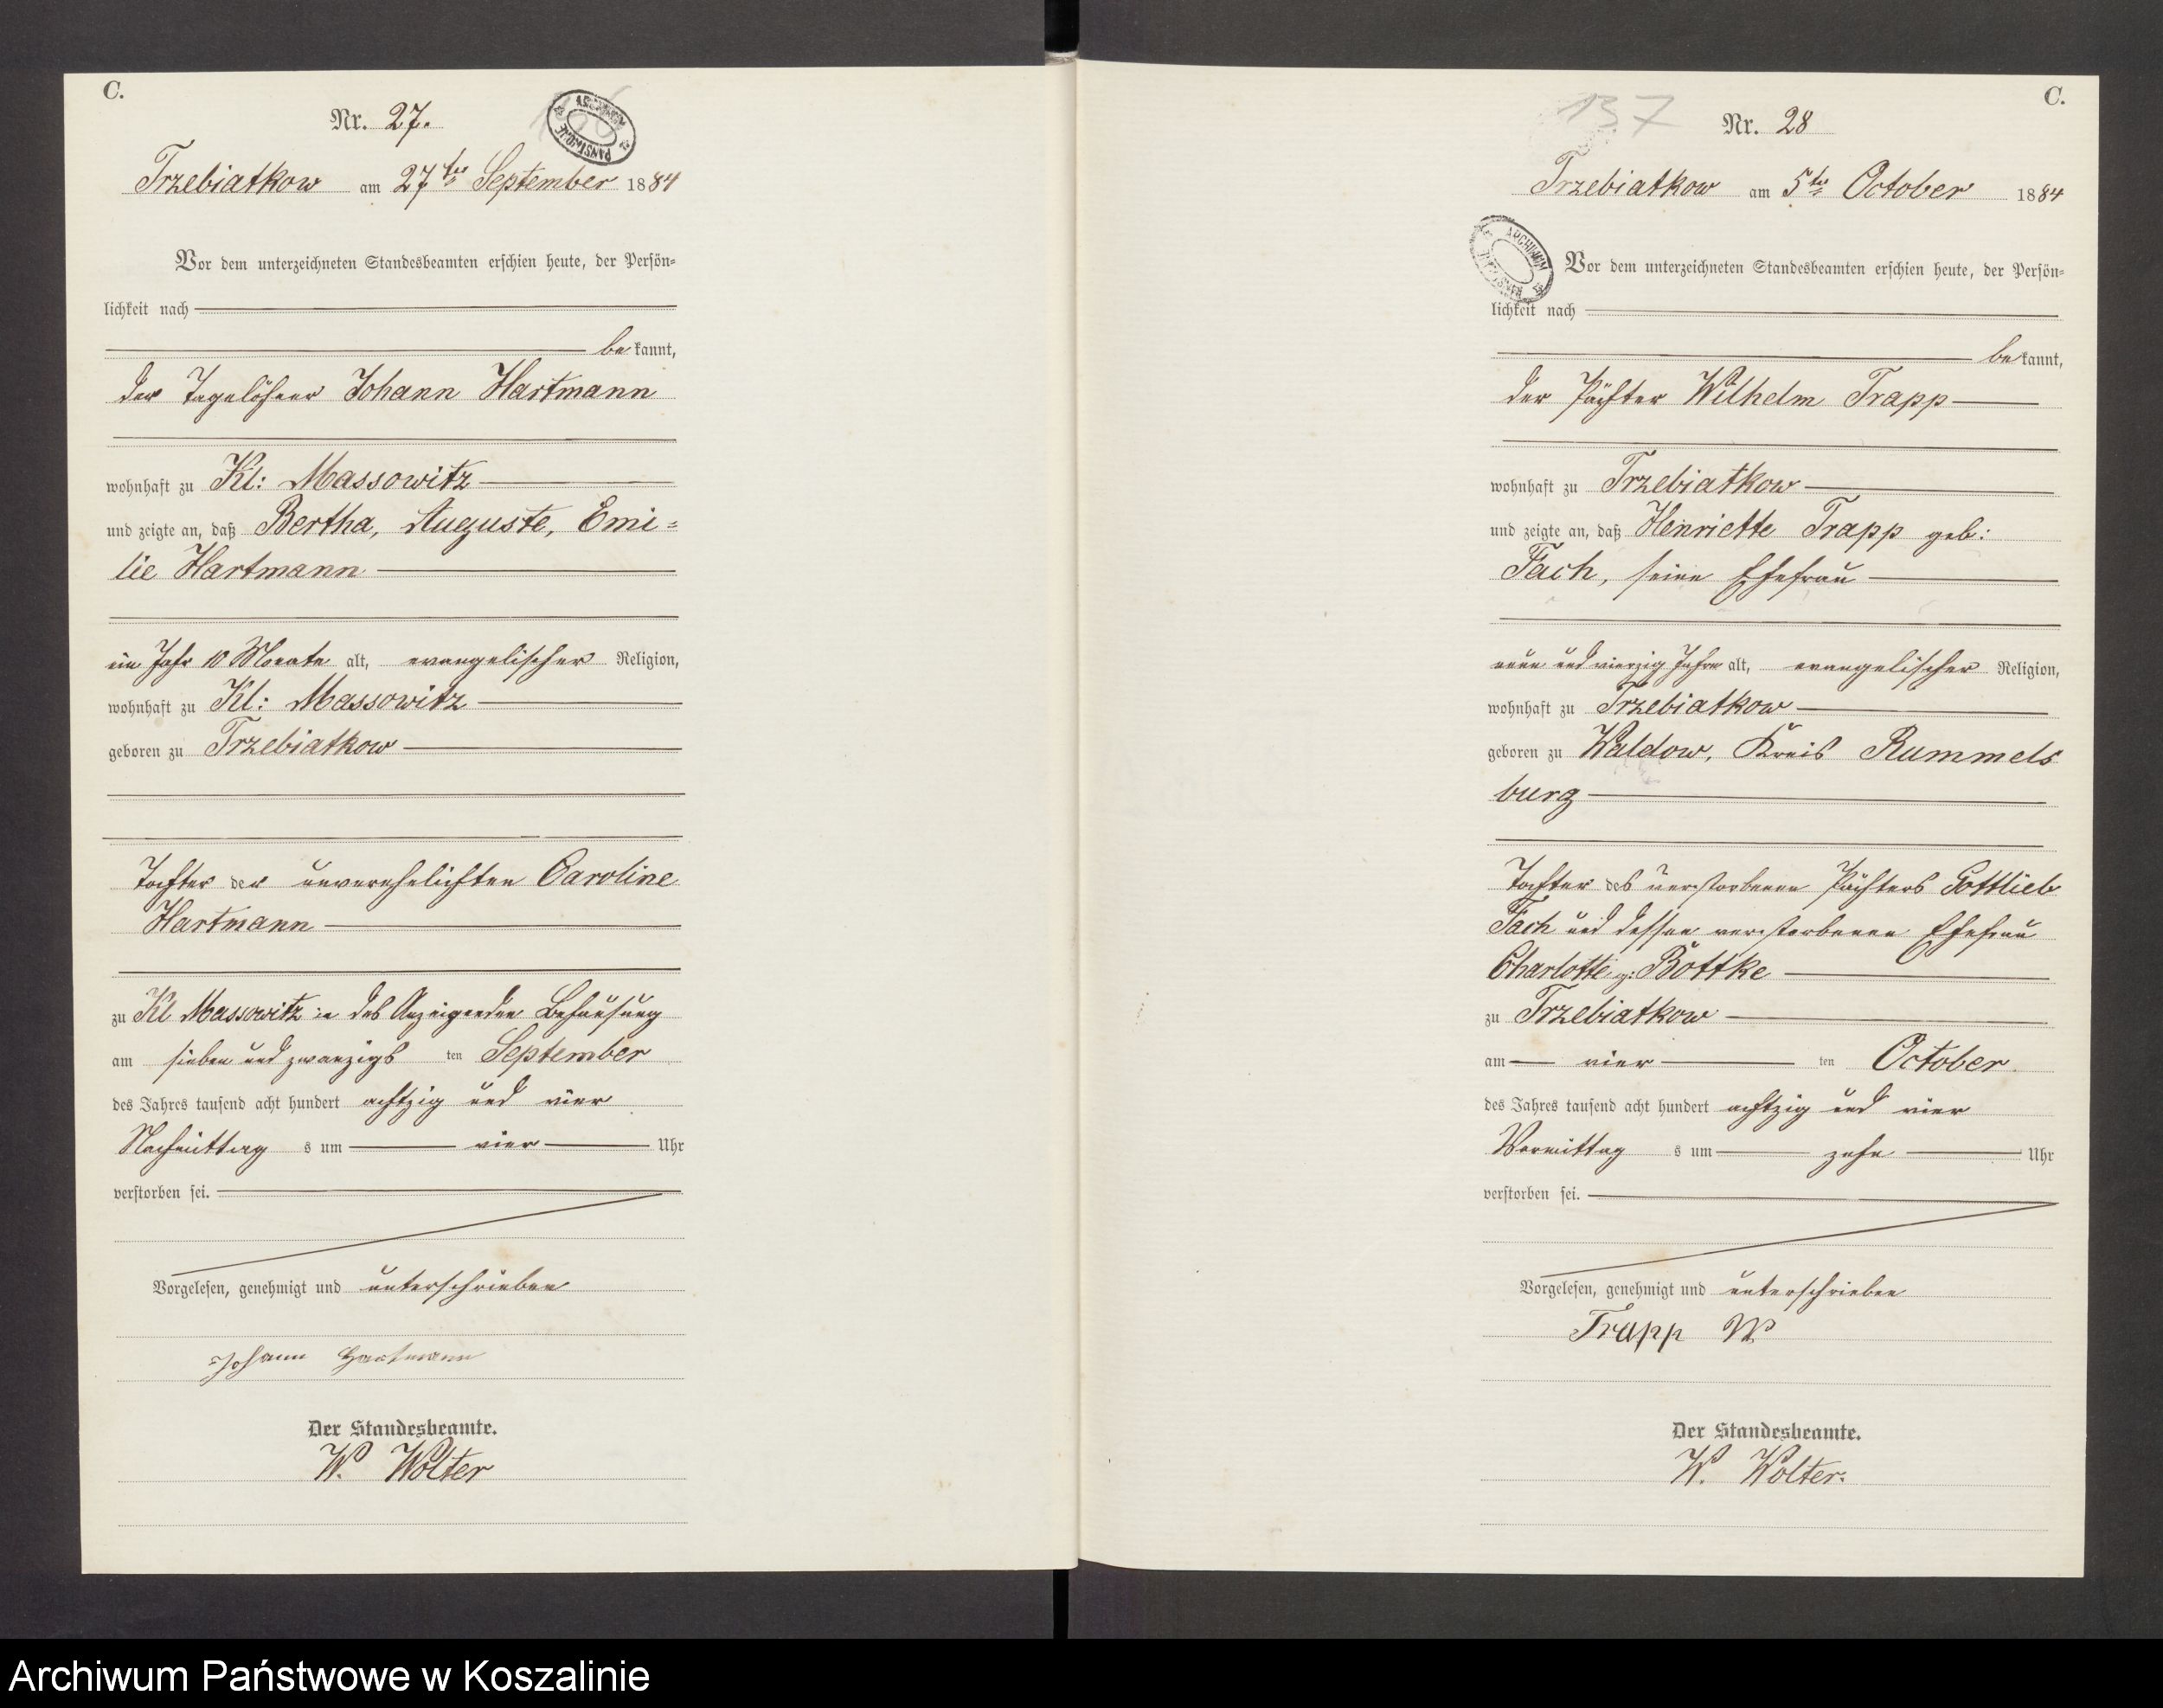 C.
Nr. 27.
ARCHIWUM PAŃSTWOWE
Trzebiatkow am 27ten September 1884
Vor dem unterzeichneten Standesbeamten erschien heute, der Persön=
lichkeit nach
be kannt,
der Tagelöhner Johann Hartmann
wohnhaft zu Kl: Massowitz
und zeigte an, daß Bertha, Auguste, Emi=
lie Hartmann
ein Jahr 10 Monate alt, evangelischer Religion,
wohnhaft zu Kl: Massowitz
geboren zu Trzebiatkow
Tochter der unverehelichten Caroline
Hartmann
zu Kl Massowitz in des Anzeigenden Behausung
am sieben und zwanzigs ten September
des Jahres tausend acht hundert achtzig und vier
Nachmittag s um vier Uhr
verstorben sei.
Vorgelesen, genehmigt und unterschrieben
Johann Hartmann
Der Standesbeamte.
W. Wolter
C.
137
Nr. 28
Trzebiatkow am 5ten October 1884
ARCHIWUM PAŃSTWOWE
Vor dem unterzeichneten Standesbeamten erschien heute, der Persön=
lichkeit nach
be kannt,
der Pächter Wilhelm Trapp
wohnhaft zu Trzebiatkow
und zeigte an, daß Henriette Trapp geb:
Fach, seine Ehefrau
neun und vierzig Jahre alt, evangelischer Religion,
wohnhaft zu Trzebiatkow
geboren zu Waldow, Kreis Rummels
burg
Tochter des verstorbenen Pächters Gottlieb
Fach und dessen verstorbenen Ehefrau
Charlotte g: Bottke
zu Trzebiatkow
am vier ten October
des Jahres tausend acht hundert achtzig und vier
Vormittag s um zehn Uhr
verstorben sei.
Vorgelesen, genehmigt und unterschrieben
Trapp W
Der Standesbeamte.
W. Wolter.
Archiwum Państwowe w Koszalinie